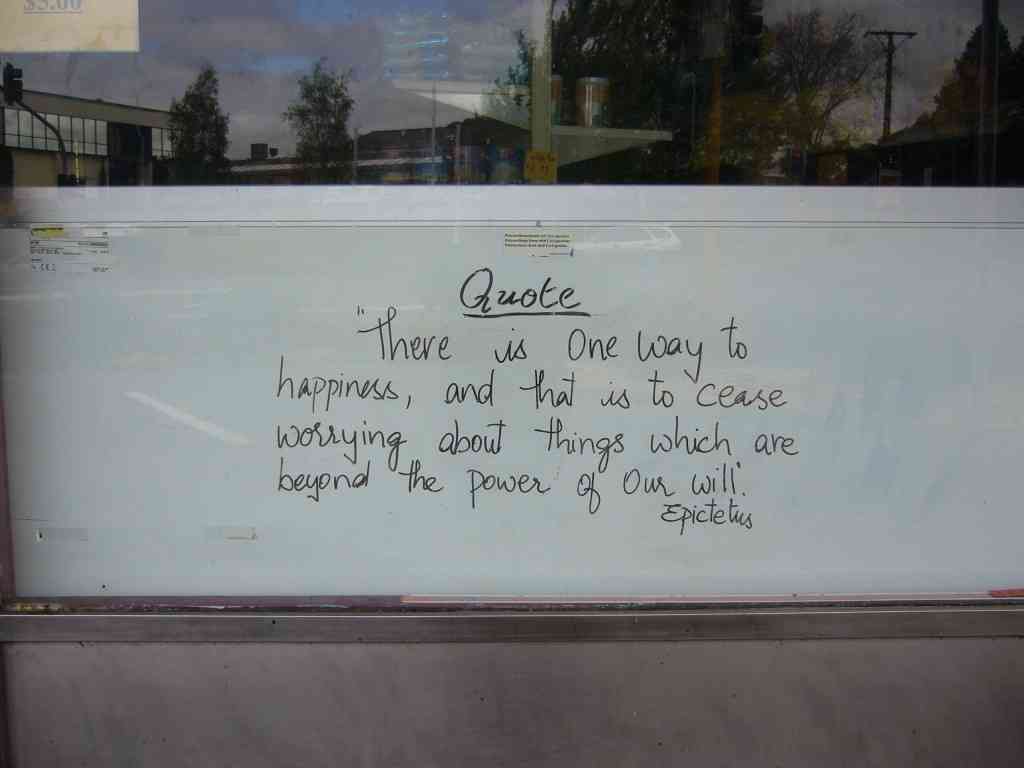 $5.00
Quote
"There is One way to
happiness, and that is to cease
worrying about things which are
beyond the power of Our will."
Epictetus